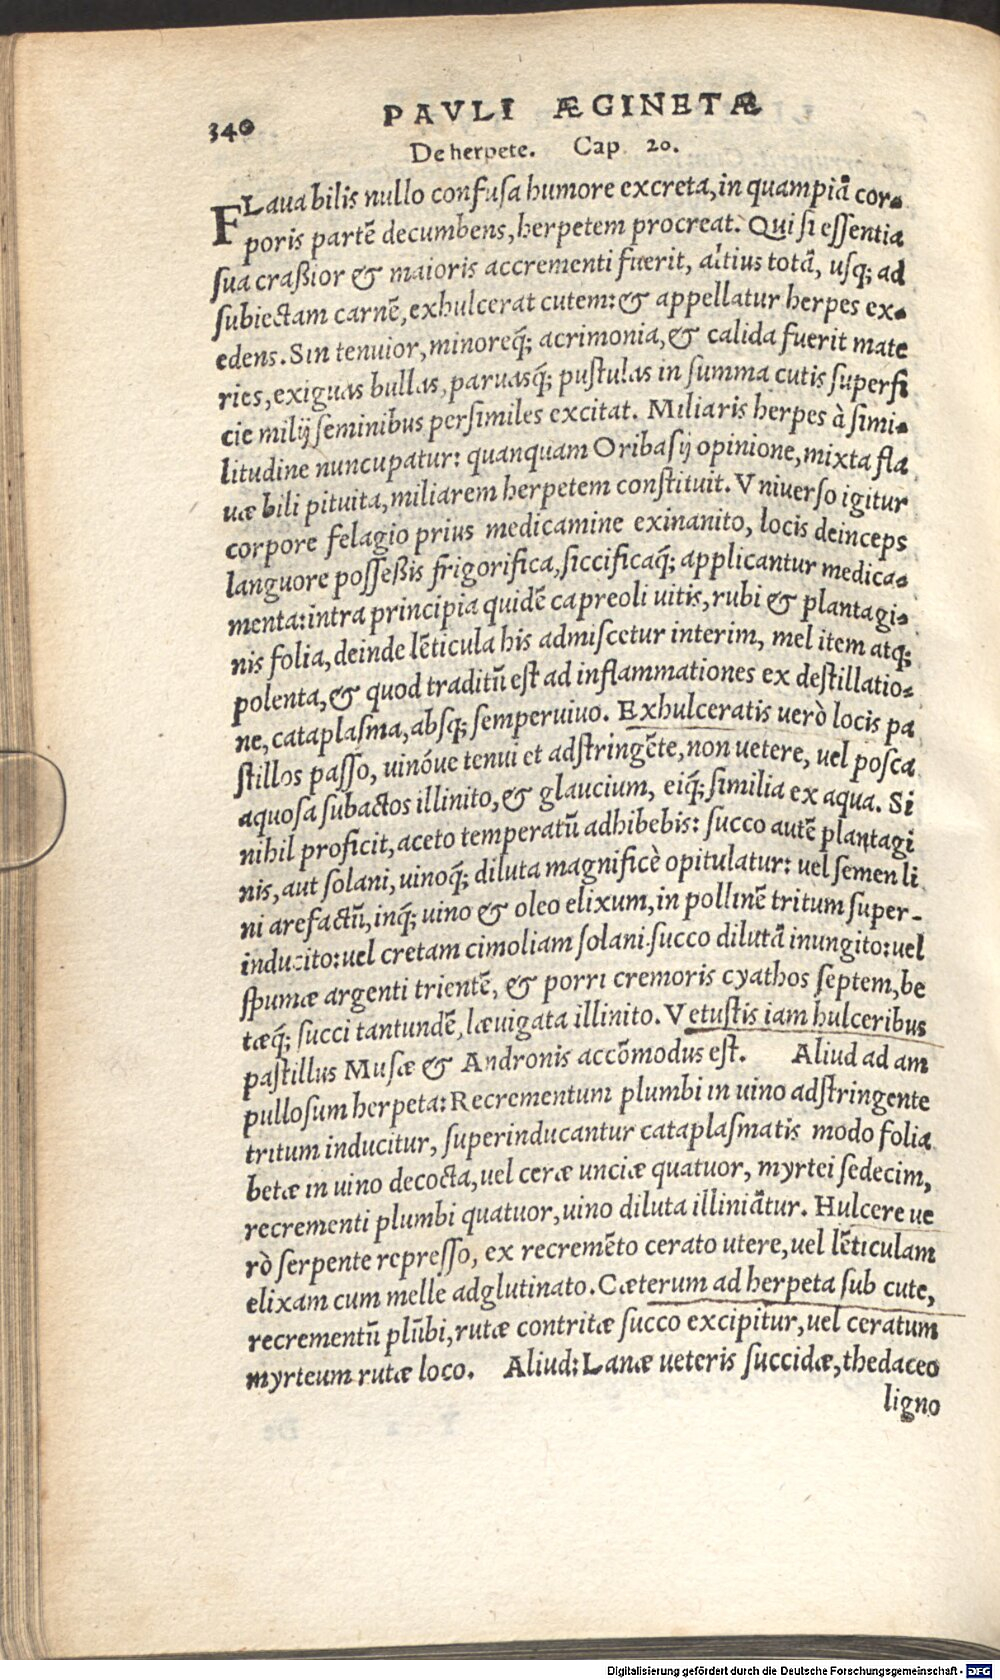 340 PAVLI ÆGINETÆ
De herpete. Cap 20.
FLaua bilis nullo confusa humore excreta, in quampiã cor-
poris partẽ decumbens, herpetem procreat. Qui si essentia
sua craßior & maioris accrementi fuerit, altius totã, usq; ad
subiectam carnẽ, exhulcerat cutem: & appellatur herpes ex-
edens. Sin tenuior, minoreq́; acrimonia, & calida fuerit mate
ries, exiguas bullas, paruasq́; pustulas in summa cutis superfi
cie milij seminibus persimiles excitat. Miliaris herpes à simi-
litudine nuncupatur: quanquam Oribasij opinione, mixta fla
uæ bili pituita, miliarem herpetem constituit. Vniuerso igitur
corpore felagio prius medicamine exinanito, locis deinceps
languore possessis frigorifica, siccificaq́; applicantur medica-
menta: intra principia quidẽ capreoli uitis, rubi & plantagi-
nis folia, deinde lẽticula his admiscetur interim, mel item atq;
polenta, & quod traditũ est ad inflammationes ex destillatio-
ne, cataplasma, absq; semperuiuo. Exhulceratis uerò locis pa
stillos passo, uinóue tenui et adstringẽte, non uetere, uel posca
aquosa subactos illinito, & glaucium, eiq́; similia ex aqua. Si
nihil proficit, aceto temperatũ adhibebis: succo autẽ plantagi
nis, aut solani, uinoq́; diluta magnificè opitulatur: uel semen li
ni arefactũ, inq́; uino & oleo elixum, in pollinẽ tritum super-
inducito: uel cretam cimoliam solani succo dilutã inungito: uel
spumæ argenti trientẽ, & porri cremoris cyathos septem, be
tæq́; succi tantundẽ, læuigata illinito. Vetustis iam hulceribus
pastillus Musæ & Andronis accõmodus est. Aliud ad am
pullosum herpeta: Recrementum plumbi in uino adstringente
tritum inducitur, superinducantur cataplasmatis modo folia
betæ in uino decocta, uel ceræ unciæ quatuor, myrtei sedecim,
recrementi plumbi quatuor, uino diluta illiniãtur. Hulcere ue
rò serpente represso, ex recremẽto cerato utere, uel lẽticulam
elixam cum melle adglutinato. Cæterum ad herpeta sub cute,
recrementũ plũbi, rutæ contritæ succo excipitur, uel ceratum
myrteum rutæ loco. Aliud: Lanæ ueteris succidæ, thedaceo
ligno
Digitalisierung gefördert durch die Deutsche Forschungsgemeinschaft - DFG